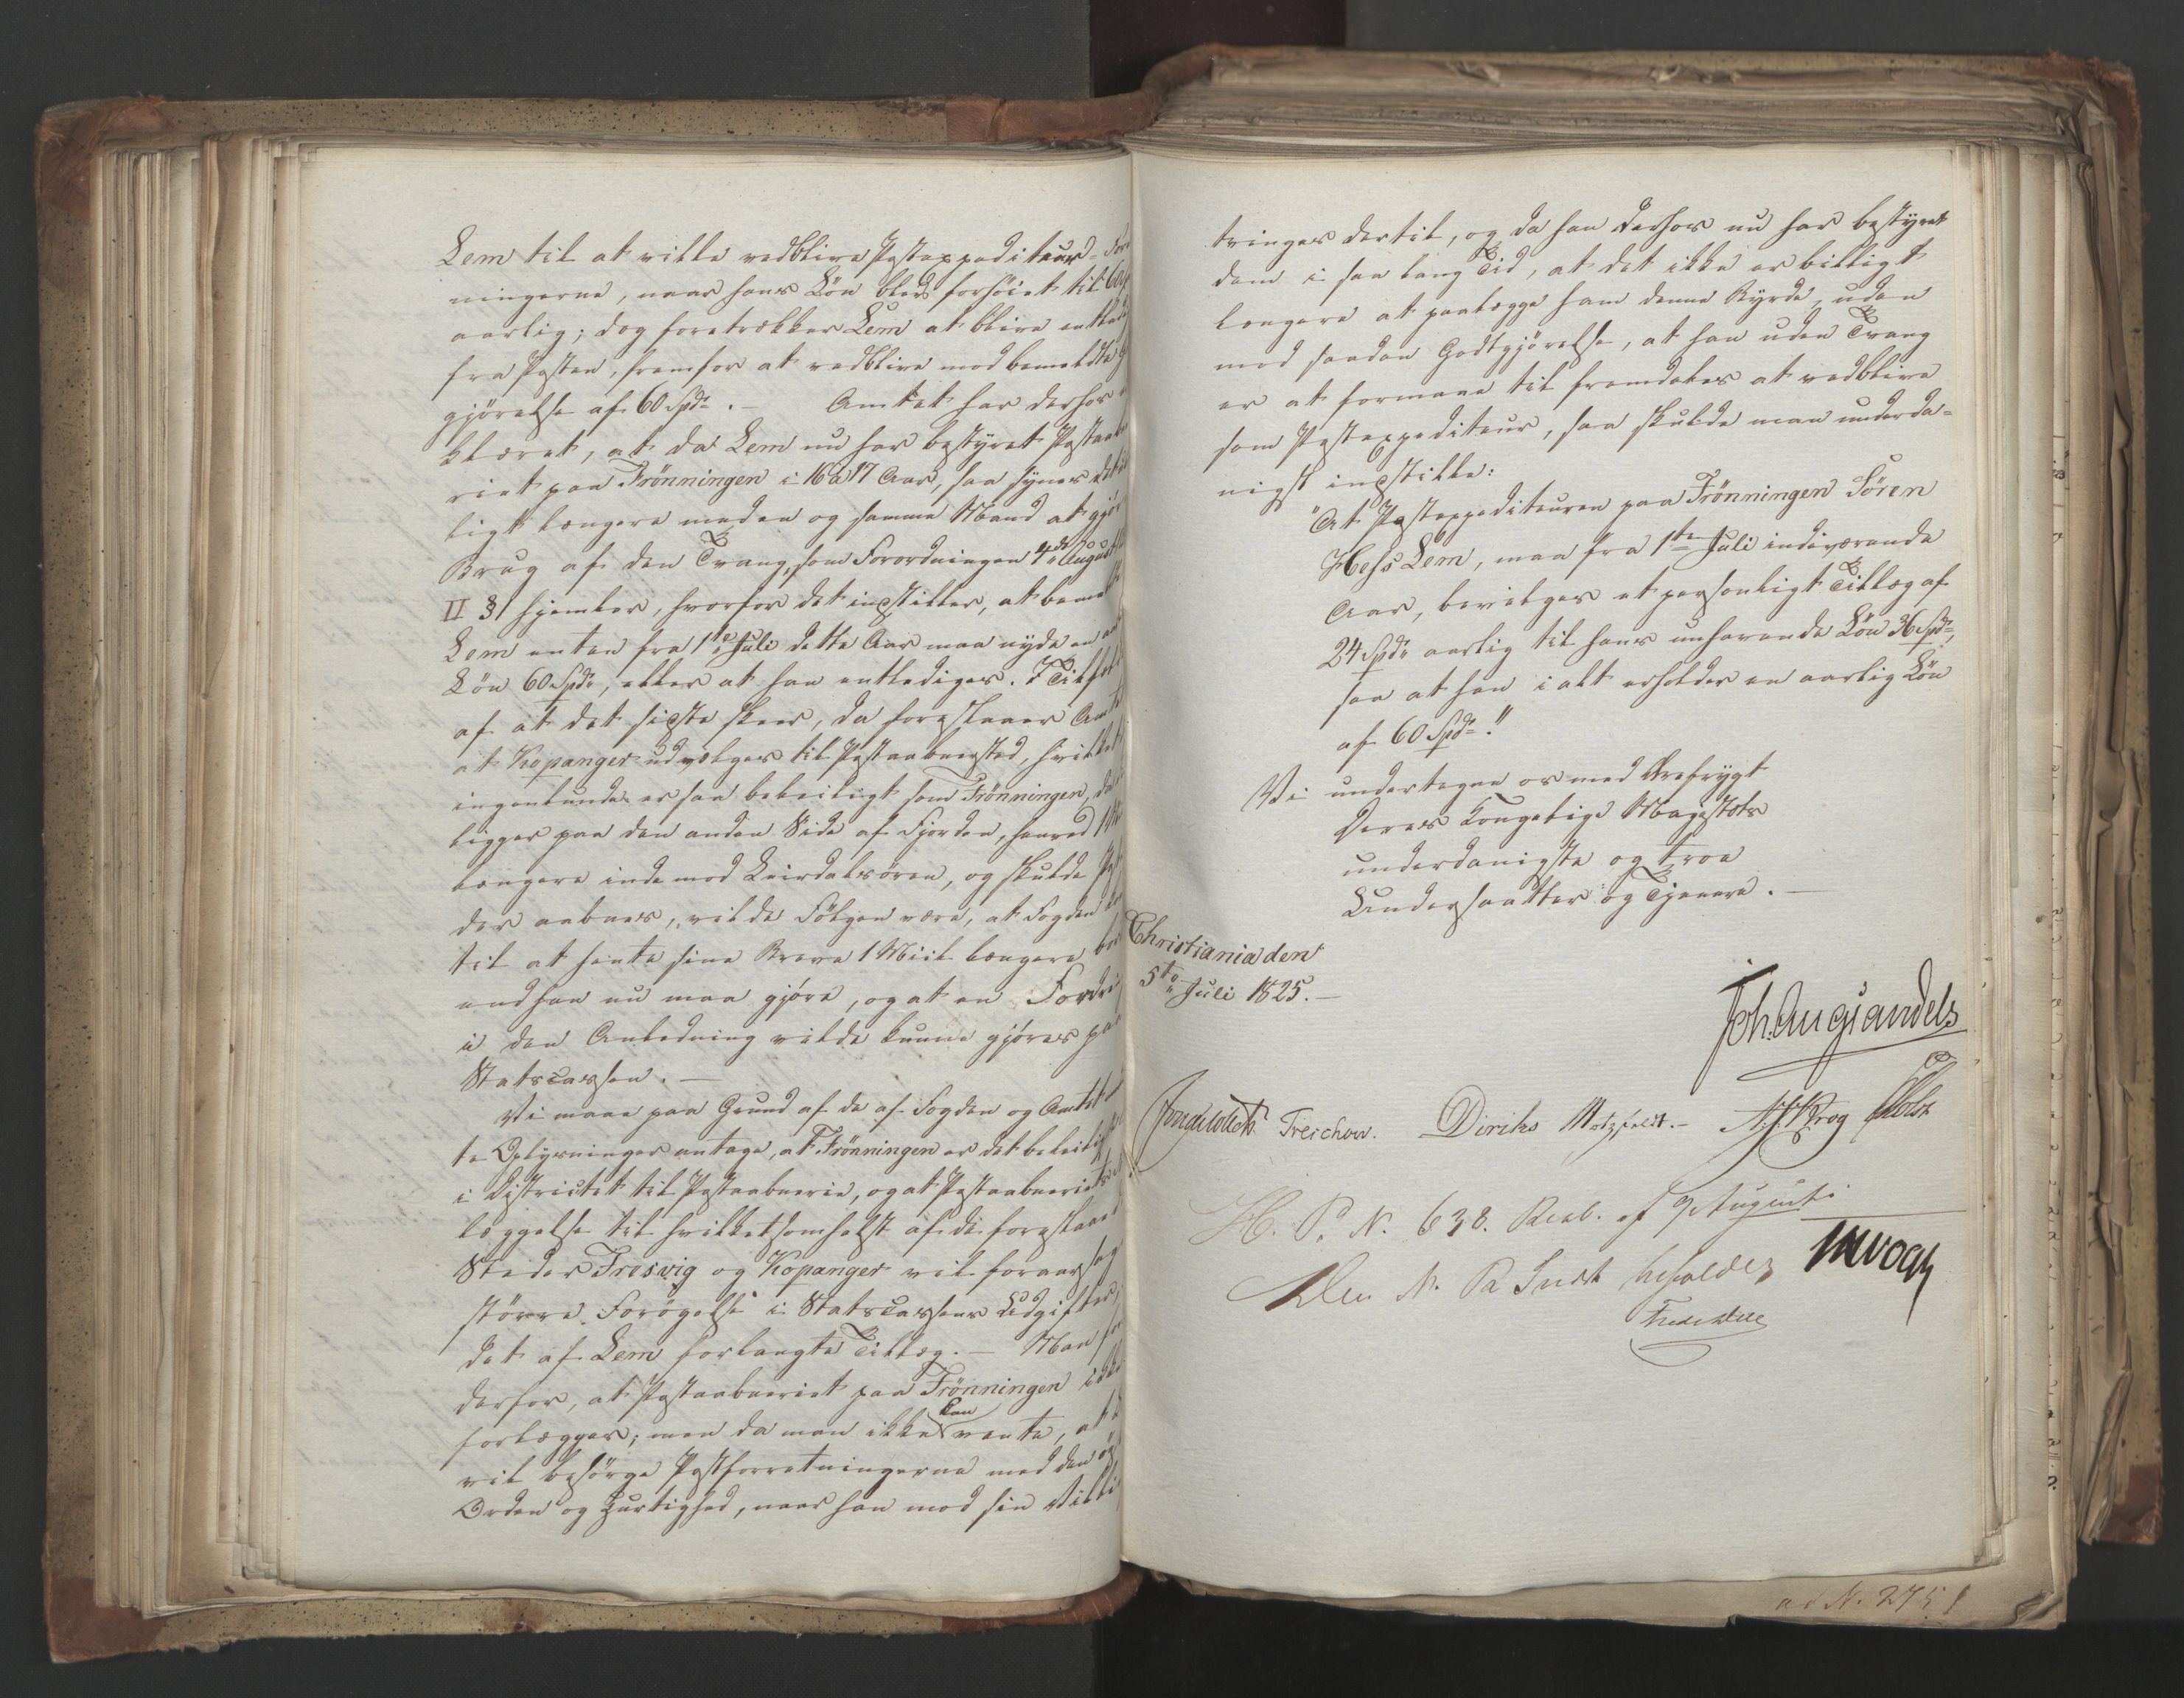 Lem til at ville vedblive Postexpediteur-For
ningerne, naar hans Lön blev forhöiet til 60
aarlig; dog foretrækker Lem at blive entled
fra Posten, fremfor at vedblive mod bemeldte G
gjörelse af 60 Spd. — Amtet har derhos
klæret, at da Lem nu har bestyret Postaab
riet paa Frönningen i 16 a 17 Aar, saa synes det
ligt længere med en og samme Mand at gjör
Brug af den Tvang, som Forordningen 4de August
II § 1 hjemler, hvorfor det indstiller, at bemel
Lem enten fra 1te Juli dette Aar maa nyde en
Lön 60 Spd., eller at han entlediges. I Tilfæl
af at det sidste skeer, da foreslaaer Amt
at Kopanger udvælges til Postaabnersted, hvilket
ingenlunde er saa beleiligt som Frönningen, da
ligger paa den anden Side af Fjorden, henved 1
længere inde mod Leirdalsören, og skulde Post
der aabnes, vilde Fölgen være, at Fogden
til at hente sine Breve 1 Miil længere bor
end han nu maa gjöre, og at en Fordri
i den Anledning vilde kunne gjöres paa
Statscassen. —
Vi maae paa Grund af de af Fogden og Amtet
te Oplysninger antage, at Frönningen er det beleilig
i Districtet til Postaabnerie, og at Postaabneriets
læggelse til hvilketsomhelst af de foreslaaed
Steder Fresvig og Kopanger vil foraarsag
större Forögelse i Statscassens Udgifter
det af Lem forlangte Tillæg. — Man
derfor, at Postaabneriet paa Frönningen ikke
forlægges; men da man ikke kan vente, at
vil besörge Postforretningerne med den
Orden og Hurtighed, naar han mod sin Villi
tvinges dertil, og da han derhos nu har bestyret
dem i saa lang Tid, at det ikke er billigt
længere at paalægge ham denne Byrde, uden
med saadan Godtgjörelse, at han uden Tvang
er at formaae til fremdeles at vedblive
som Postexpediteur, saa skulde man underda=
nigst indstille:
"At Postexpediteuren paa Frönningen Sören
Hess Lem, maa fra 1te Juli indeværende
Aar, bevilges et personligt Tillæg af
24 Spd. aarlig til hans nuhavende Lön 36 Spd.,
saa at han i alt erholder en aarlig Lön
af 60 Spd."
Vi undertegne os med Ærefrygt
Deres Kongelige Majestæts
underdanigste og troe
Undersaatter og Tjenere. —
Christiania den
5te Juli 1825. —
Joh. Aug. Sandels
Treschow. Diriks Motzfeldt. — Krog Holst
H. P. N. 638. Resol. af 9 August
Den N. R. Indst. beholdes
Vogt
ad N. 2751